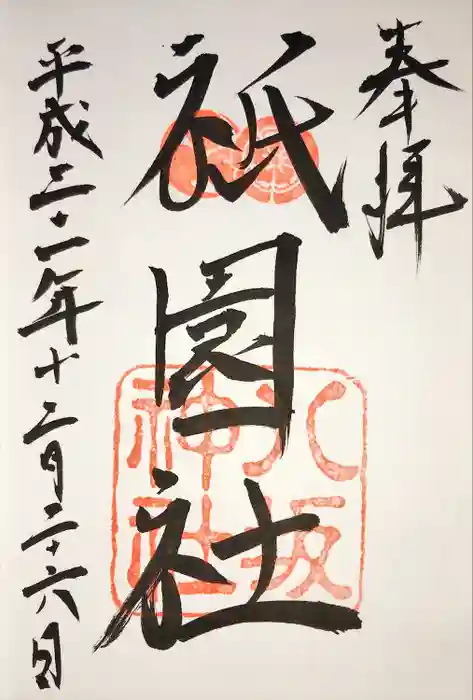 奉拝
祇園社
八坂
神社
平成二十一年十二月二十六日